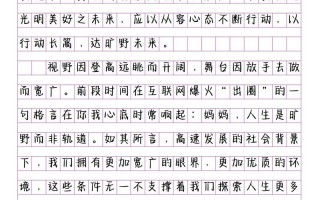 光明美好之未来，应以从容心态不断行动，以
行动长篙，达旷野未来。
视野因登高远眺而开阔，舞台因放手去做
而宽广。前段时间在互联网爆火“出圈”的一
句格言在你我心底时常响起：妈妈，人生是旷
野而非轨道。如其所言，高速发展的社会背景
下，我们拥有更加宽广的眼界，更加优质的环
境，这些条件无一不支撑着我们探索人生更多